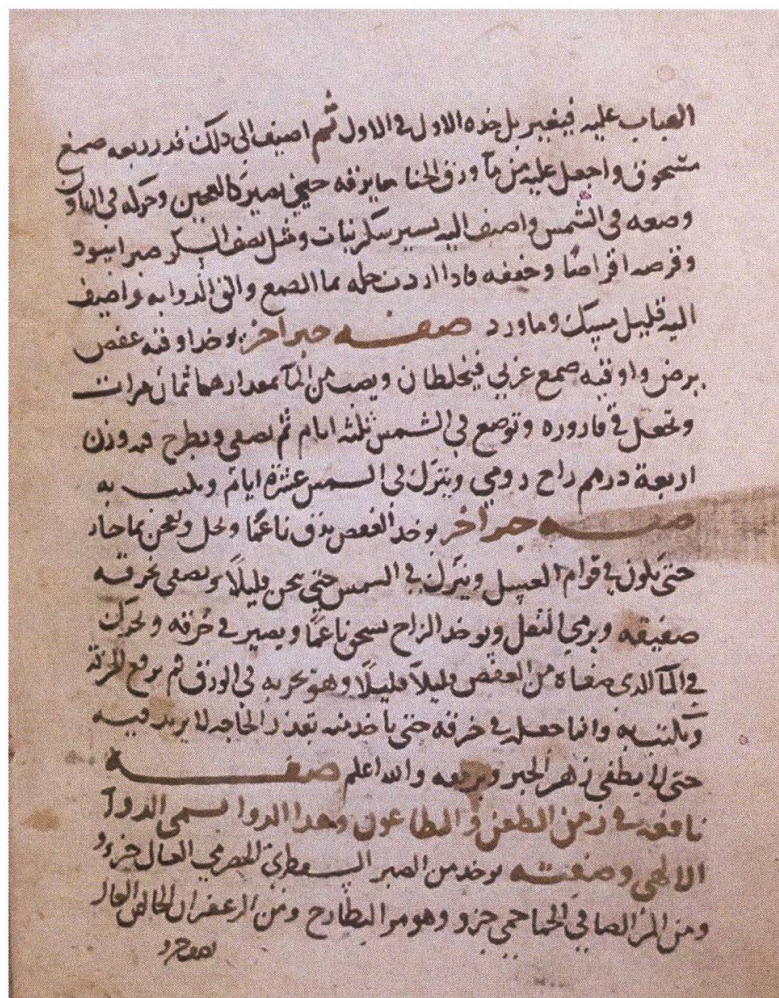 الضباب عليه فيغير بل خده الاول في الاول ثم اضيف الى ذلك قدر ربعه صمغ
مسحوق واجعل عليه من مآ ورق الحنا ما يزقه حتى يصير كالعجين وحركه في الهاون
وضعه في الشمس واضف اليه يسير سكر نبات ومثل نصف السكر صبر اسود
وقرصه اقراصا وجففه فادا اردت حله بمآ الصمغ والق الدوا به واضيف
اليه قليل مسك وماورد صفـه حبر اخر يوخد اوقيه عفص
برض واوقيه صمغ عربي فيخلطان ويصب من المآ مقدارهما ثمان مرات
وتجعل في قاروره وتوضع في الشمس ثلثه ايام ثم يصفى ويطرح فيه وزن
اربعة درهم زاج رومي ويترك في الشمس عشرة ايام ويكتب به
صفـه حبر اخر يوخد العفص يدق ناعما وينخل ويعجن بمآ حار
حتى يكون في قوام العسل ويترك في الشمس حتى يسخن قليلا ويصفى بخرقه
صفيقه ويرمي الثفل ويوخد الزاج يسحق ناعما ويصير في خرقه ويحرك
في المآ الدى صفاه من العفص قليلا قليلا وهو يجربه في الورق ثم يرفع الخرقة
ويكتب به وانما جعل في خرقه حتى ياخد منه بقدر الحاجه لا يزيد فيه
حتى لا يطفي زهر الحبر وبريقه والله اعلم صفـــه
نافعه في زمن الطعن والطاعون وهدا الدوا يسمى الدوآ
الالهي وصفته يوخد من الصبر السقطري الحضرمي العال جزء
ومن المر الصافي جزو وهو مر البطارخ ومن الزعفران الخالص العال
نصف جزو